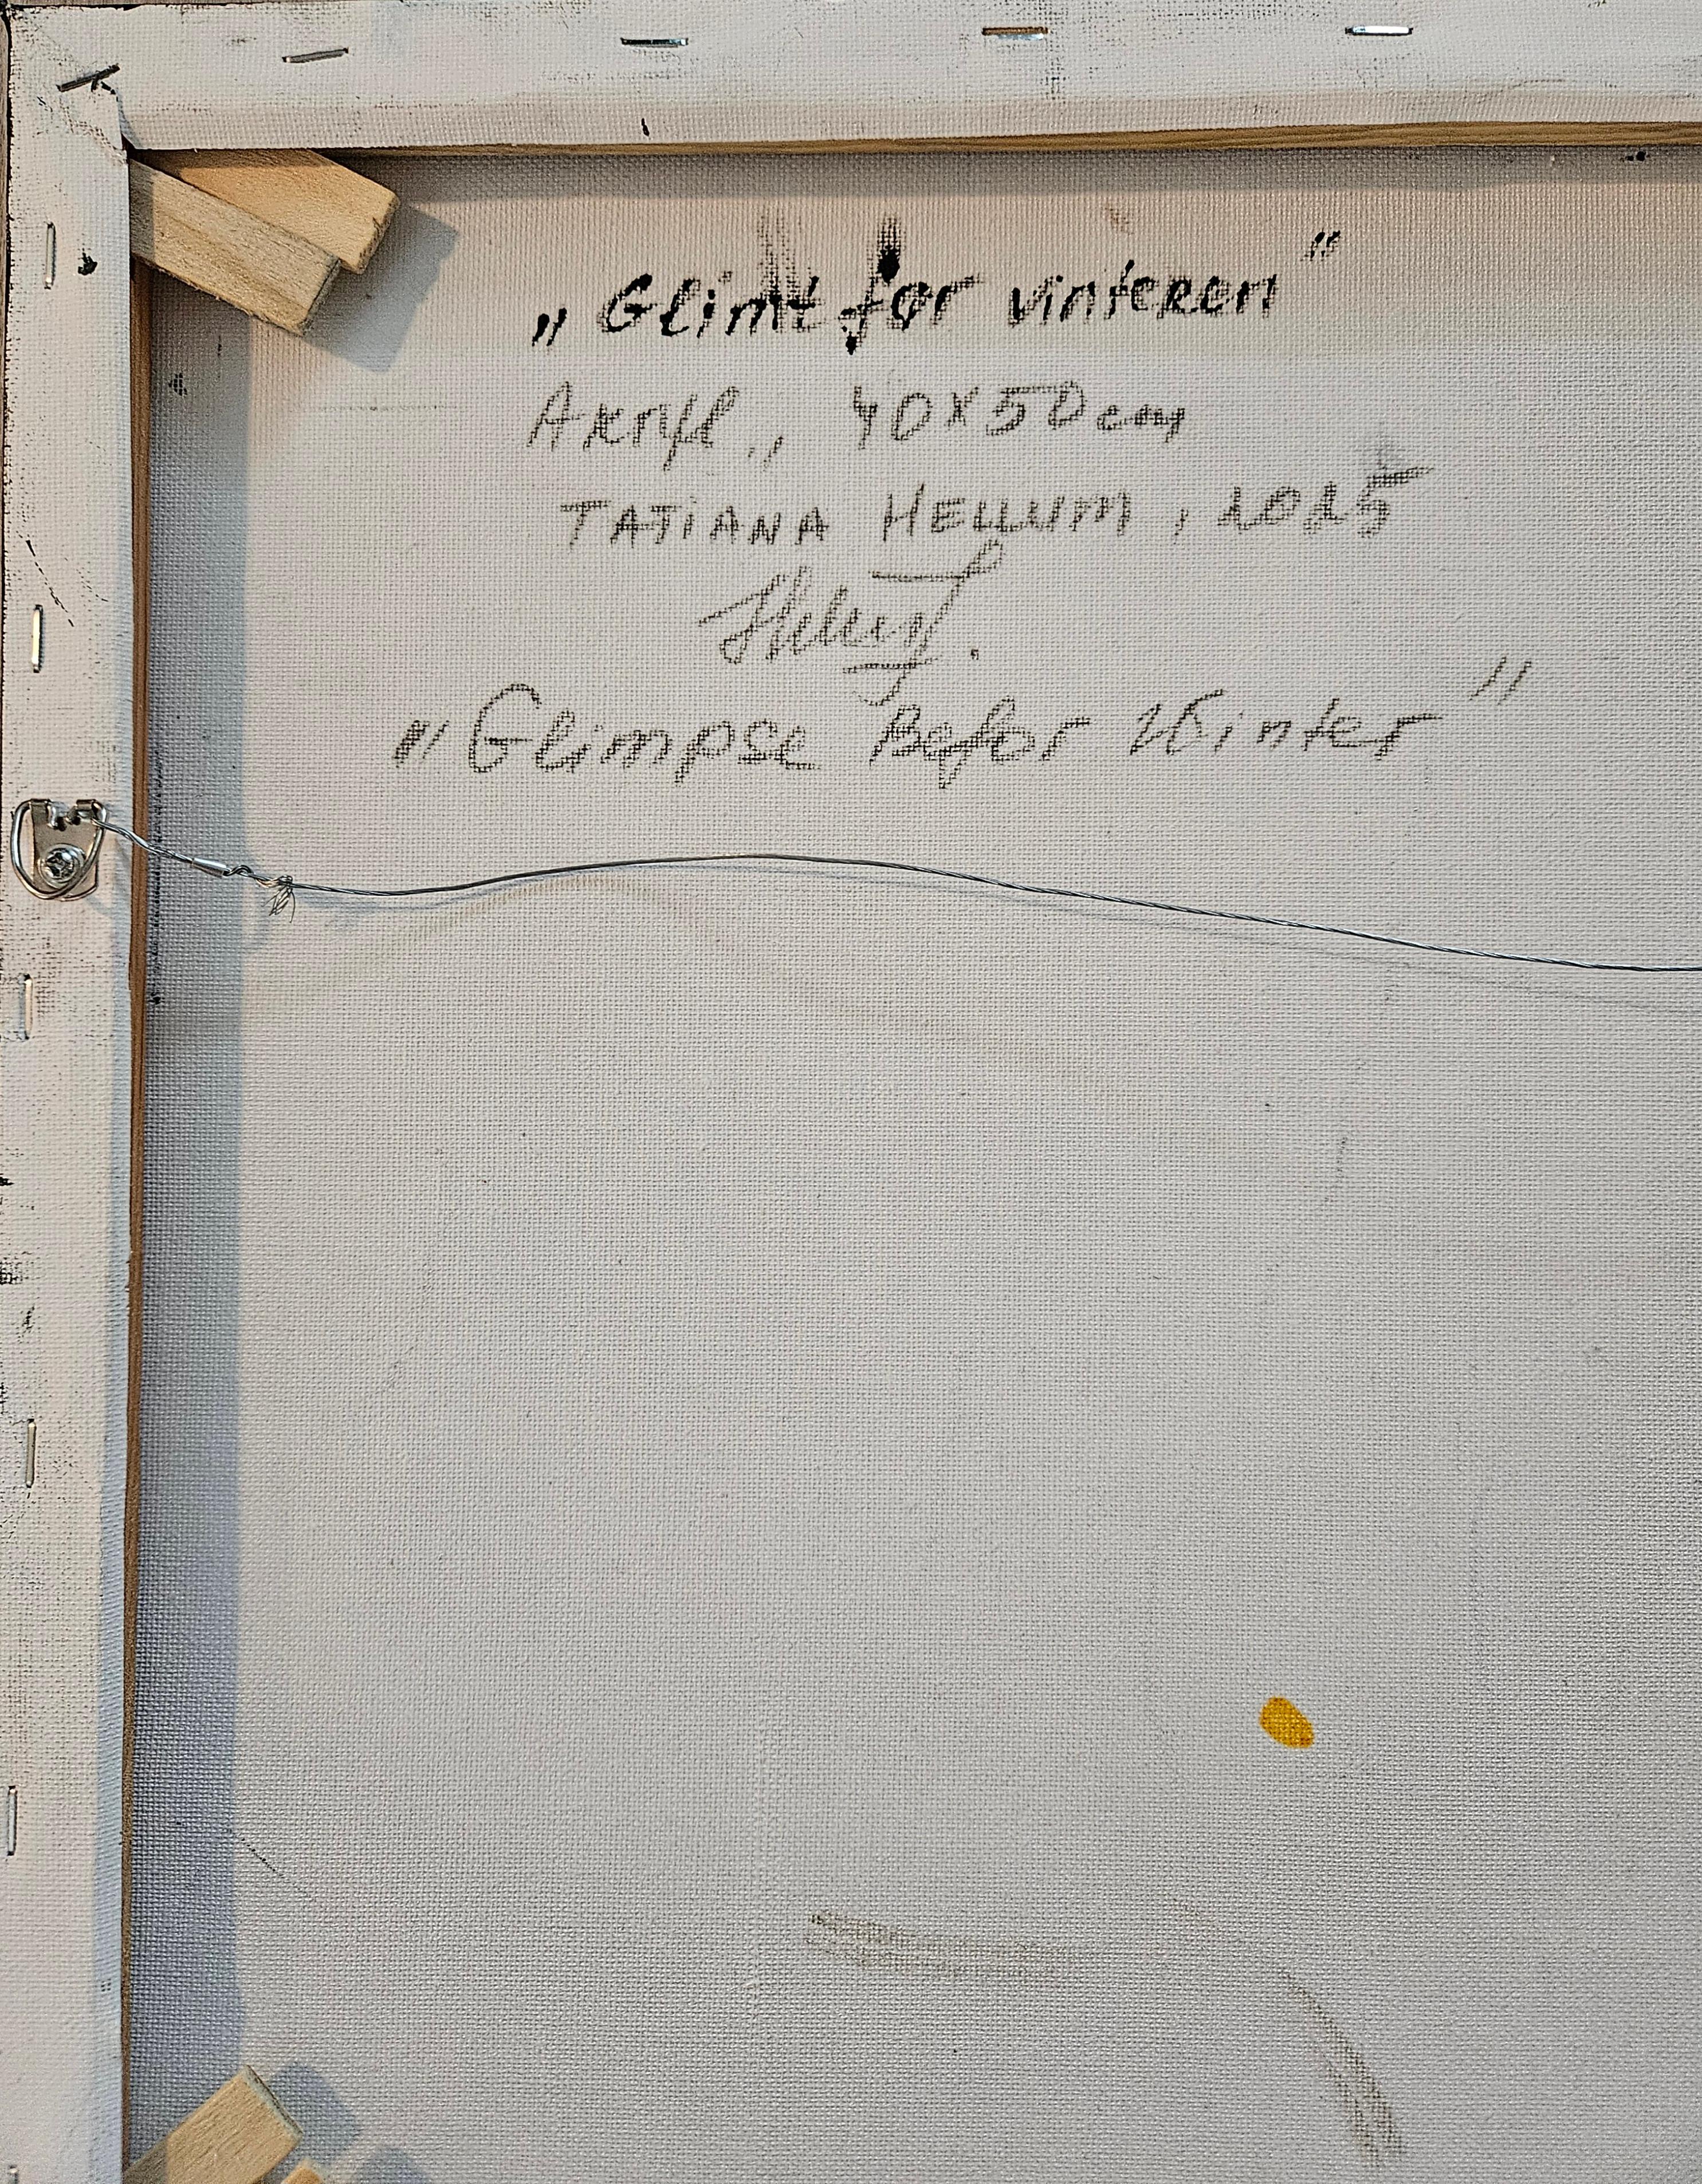 „Glimt før vinteren"
Akryl., 40x50cm
TATIANA HELLUM, 2025
"Glimpse Befor Winter"